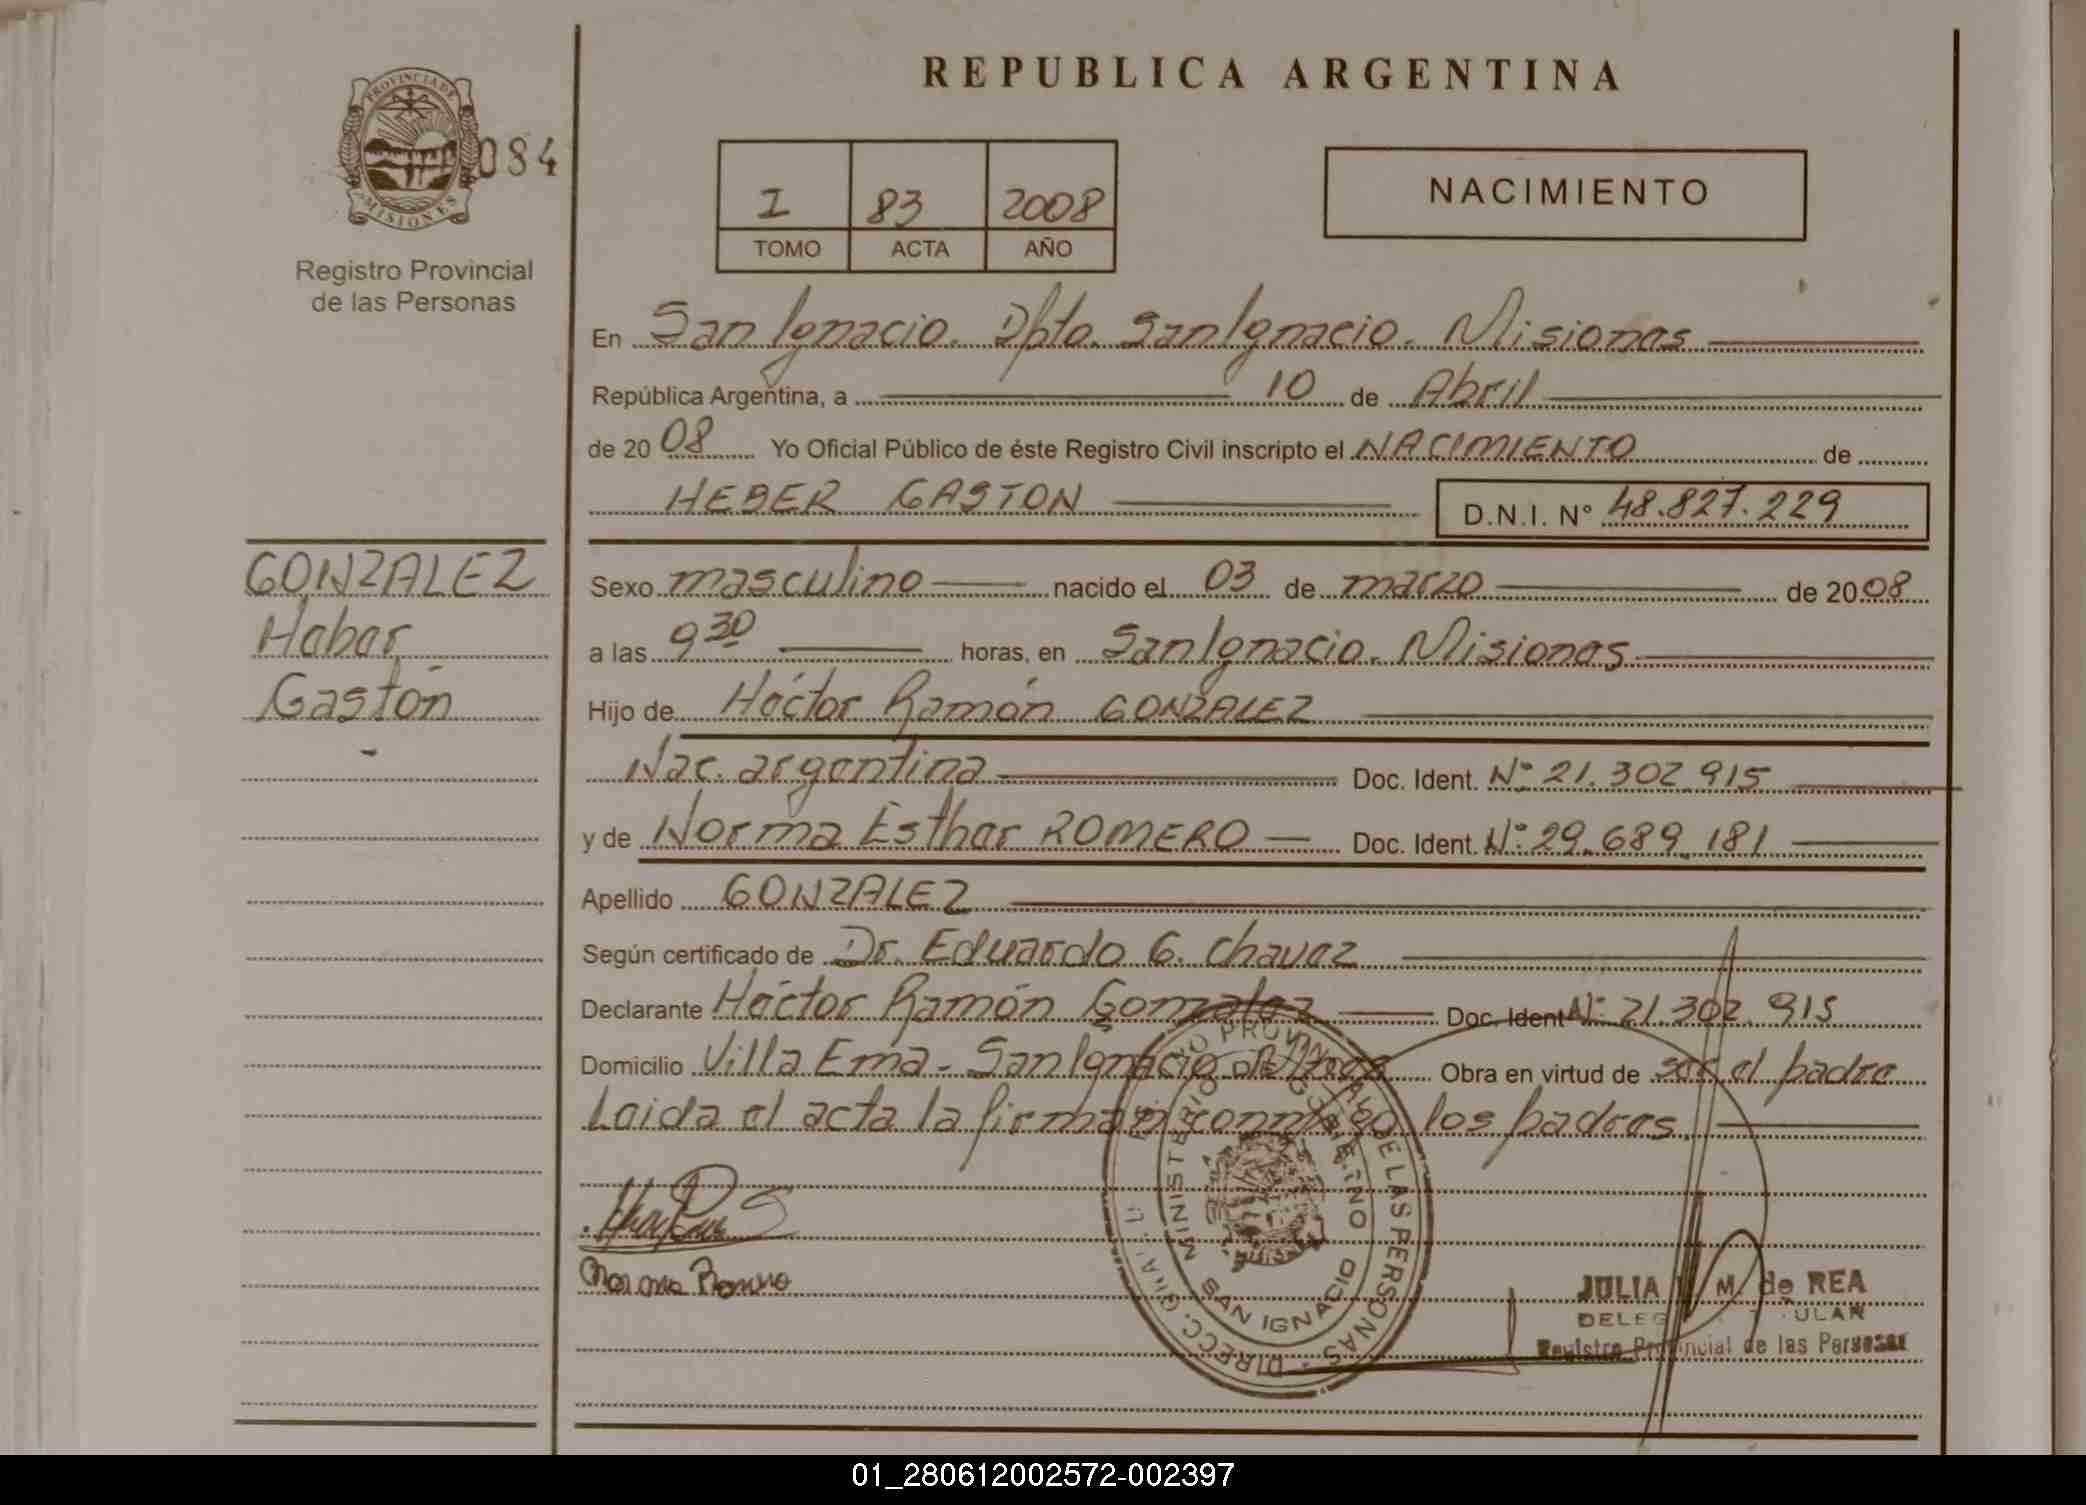 REPUBLICA ARGENTINA
PROVINCIA DE
MISIONES
084
Registro Provincial
de las Personas
I 83 2008
TOMO ACTA AÑO
NACIMIENTO
En San Ignacio. Dpto. San Ignacio. Misiones
República Argentina, a 10 de Abril
de 2008 Yo Oficial Público de éste Registro Civil inscripto el NACIMIENTO de
HEBER GASTON D.N.I. N° 48.827.229
GONZALEZ
Heber
Gastón
Sexo masculino nacido el 03 de marzo de 2008
a las 9 30 horas, en San Ignacio. Misiones
Hijo de Héctor Ramón GONZALEZ
Nac. argentina Doc. Ident. N° 21.302.915
y de Norma Esther ROMERO Doc. Ident. N° 29.689.181
Apellido GONZALEZ
Según certificado de Dr. Eduardo G. Chavez
Declarante Héctor Ramón Gonzalez Doc. Ident N° 21.302.915
Domicilio Villa Ema - San Ignacio Obra en virtud de ser el padre
Leida el acta la firman conmigo los padres.
Norma Romero
MINISTERIO DE GOBIERNO
SAN IGNACIO
DE LAS PERSONAS
DIRECC. GRAL.
JULIA M. de REA
Registro Provincial de las Personas
01_280612002572-002397